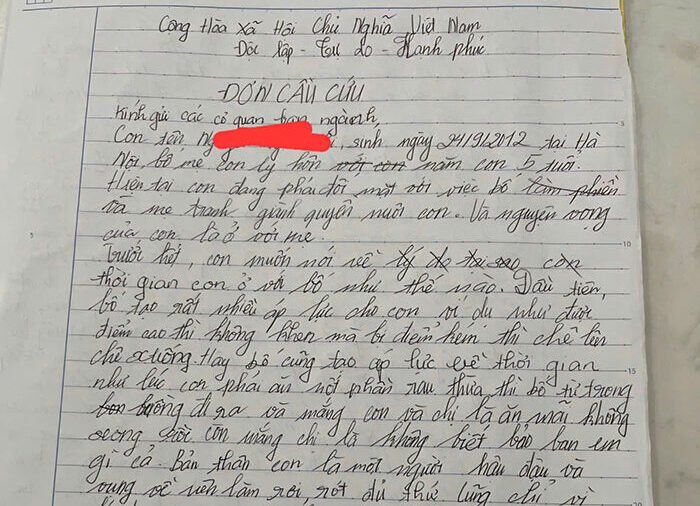 Cộng Hòa Xã Hội Chủ Nghĩa Việt Nam
Độc lập - Tự do - Hạnh phúc
ĐƠN CẦU CỨU
Kính gửi các cơ quan ban ngành,
Con tên Ng , sinh ngày 24/9/2012 tại Hà
Nội bố mẹ con ly hôn với con năm con 5 tuổi.
Hiện tại con đang phải đối mặt với việc bố làm phiền
và mẹ tranh giành quyền nuôi con. Và nguyện vọng
của con là ở với mẹ.
Trước hết, con muốn nói về lý do tại sao còn
thời gian con ở với bố như thế nào. Đầu tiên,
bố tạo rất nhiều áp lực cho con ví dụ như được
điểm cao thì không khen mà bị điểm kém thì chê lên
chê xuống Hay bố cũng tạo áp lực về thời gian
như lúc con phải ăn nột phần rau thừa thì bố từ trong
buồng đi ra và mắng con và chị là ăn mãi không
xong rồi còn mắng chị là không biết bảo ban em
gì cả. Bản thân con là một người hậu đậu và
vụng về nên làm rơi, rớt đủ thứ cũng chỉ vì